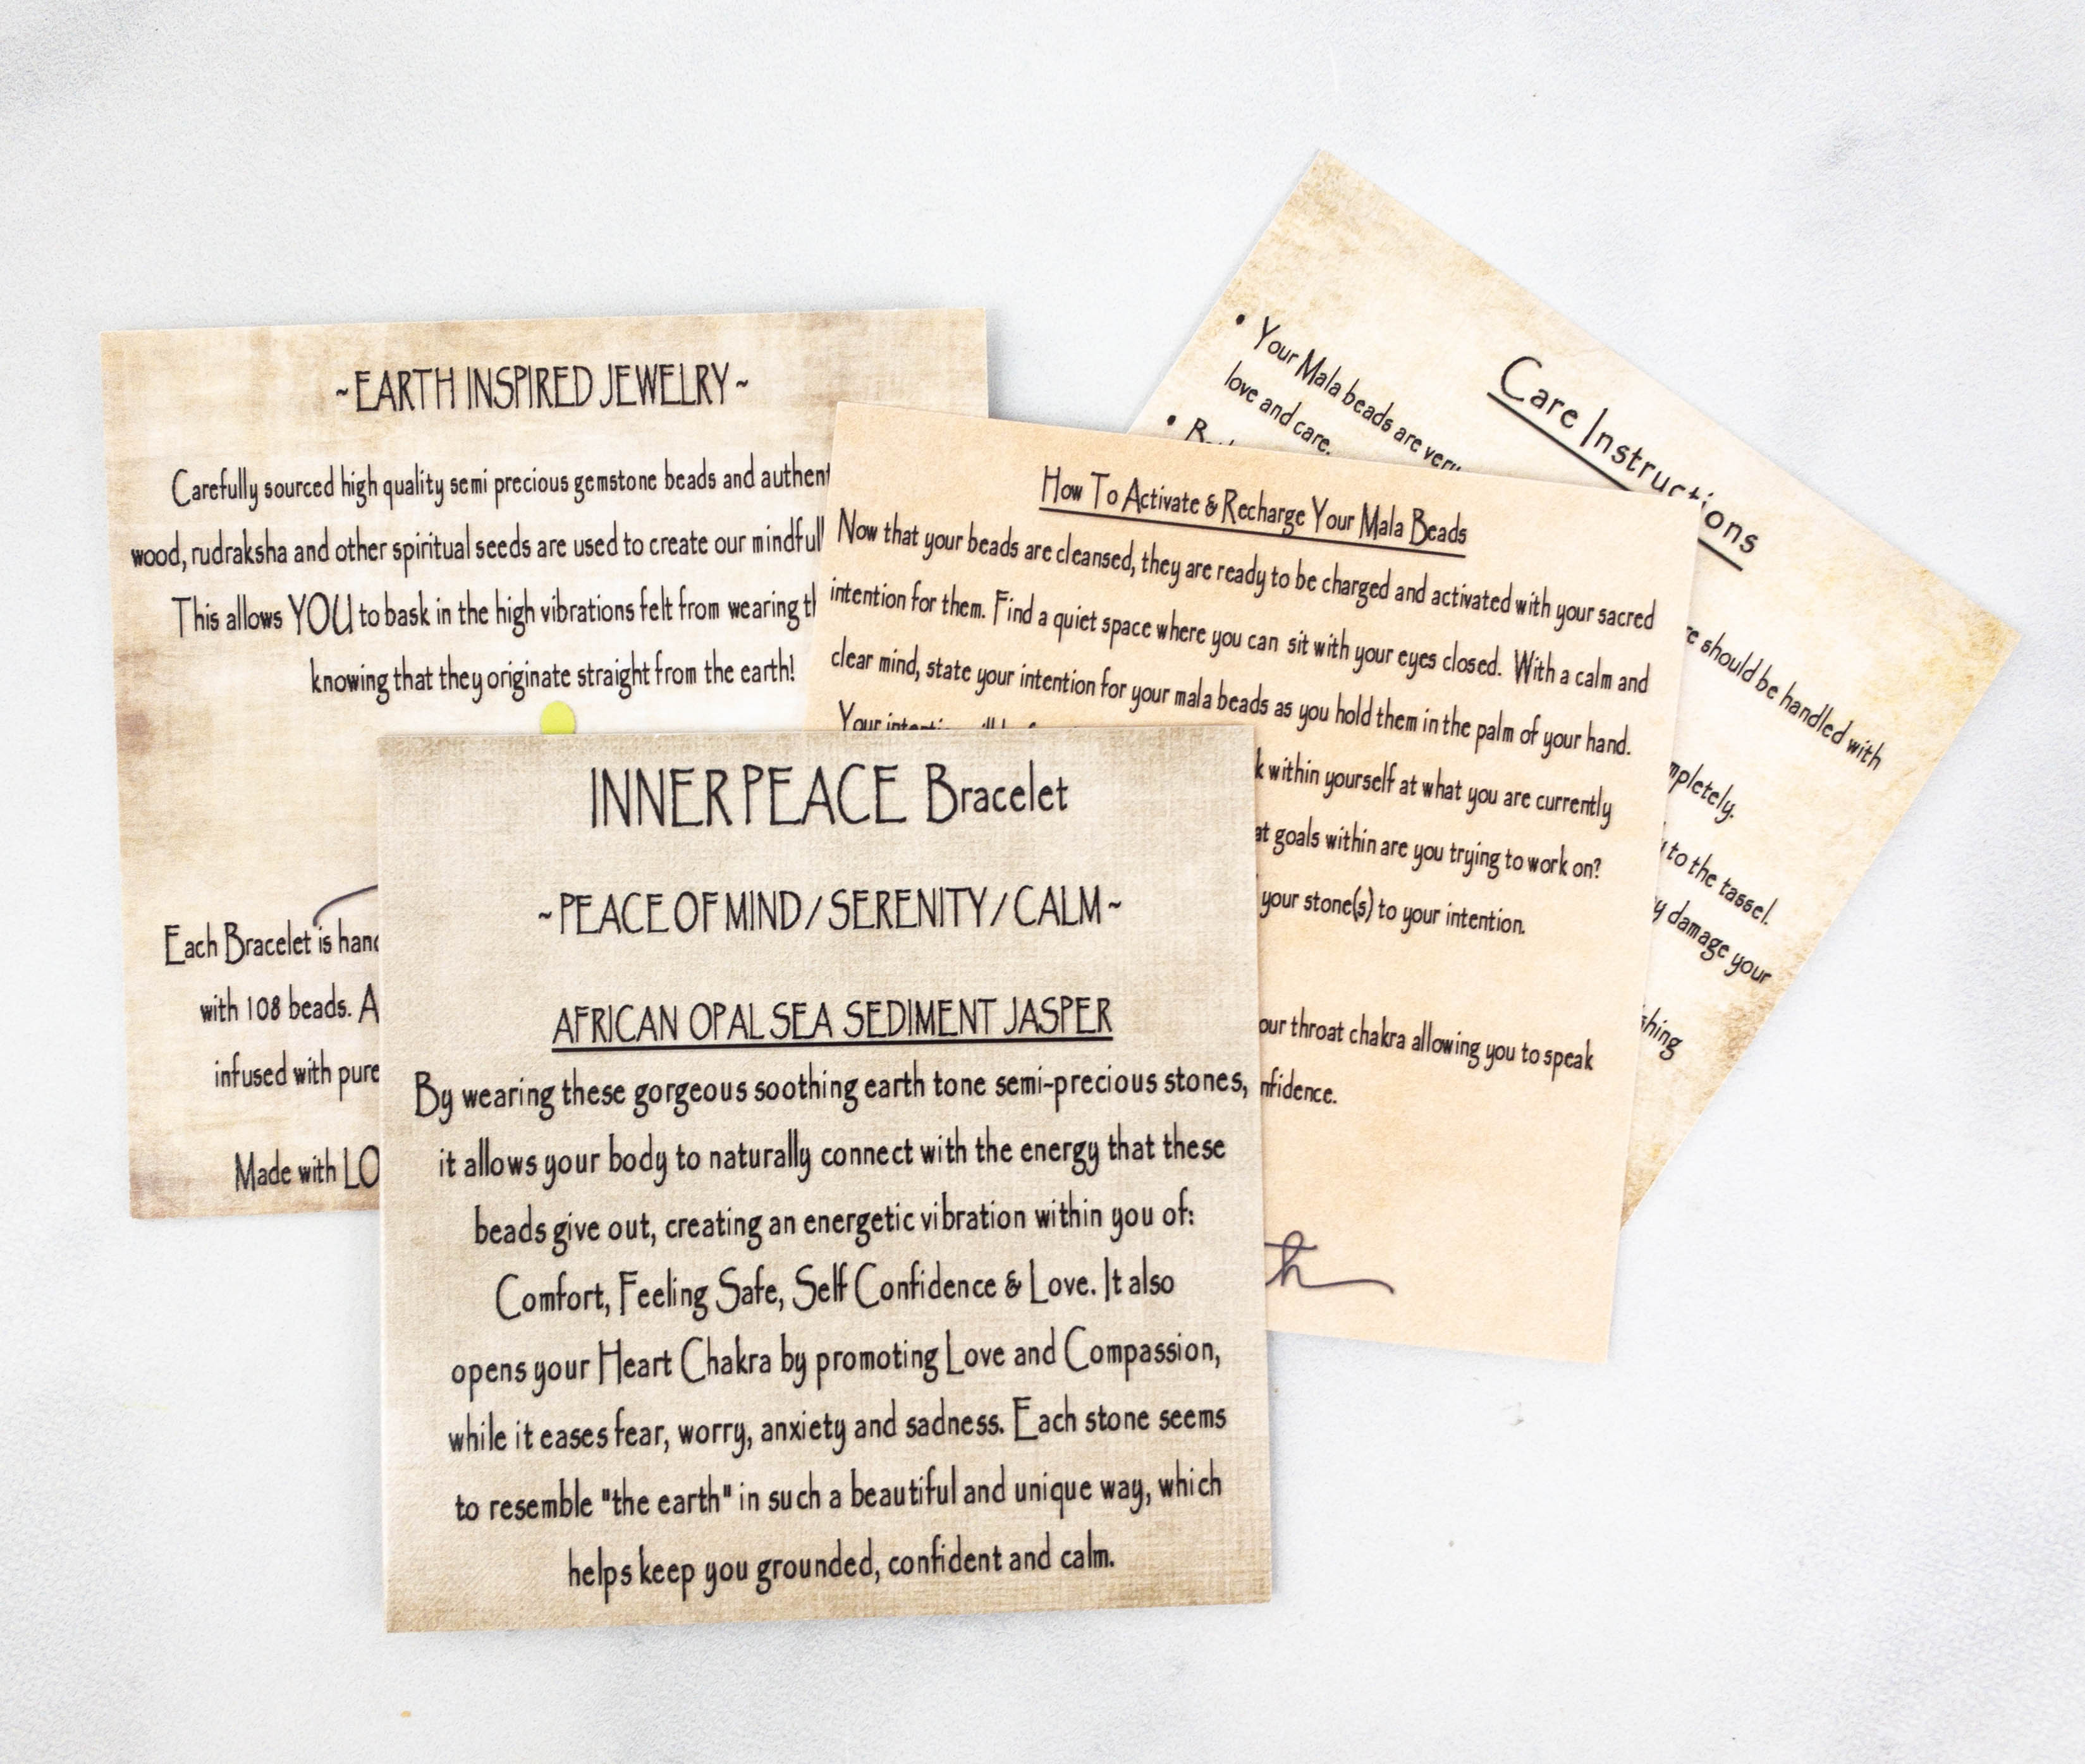 ~EARTH INSPIRED JEWELRY~
Carefully sourced high quality semi precious gemstone beads and
wood, rudraksha and other spiritual seeds are used to create our
This allows YOU to bask in the high vibrations felt from wearing
knowing that they originate straight from the earth!
Each Bracelet is
with 108 beads.
infused with pure
Made with
How To Activate & Recharge Your Mala Beads
Now that your beads are cleansed, they are ready to be charged and activated with your sacred
intention for them. Find a quiet space where you can sit with your eyes closed. With a calm and
clear mind, state your intention for your mala beads as you hold them in the palm of your hand.
Your
within yourself at what you are currently
goals within are you trying to work on?
your stone(s) to your intention.
throat chakra allowing you to speak
Care Instructions
• Your Mala beads are very
love and care.
should be handled with
to the tassel.
damage your
INNER PEACE Bracelet
~PEACE OF MIND/SERENITY/CALM~
AFRICAN OPAL SEA SEDIMENT JASPER
By wearing these gorgeous soothing earth tone semi-precious stones,
it allows your body to naturally connect with the energy that these
beads give out, creating an energetic vibration within you of:
Comfort, Feeling Safe, Self Confidence & Love. It also
opens your Heart Chakra by promoting Love and Compassion,
while it eases fear, worry, anxiety and sadness. Each stone seems
to resemble "the earth" in such a beautiful and unique way, which
helps keep you grounded, confident and calm.